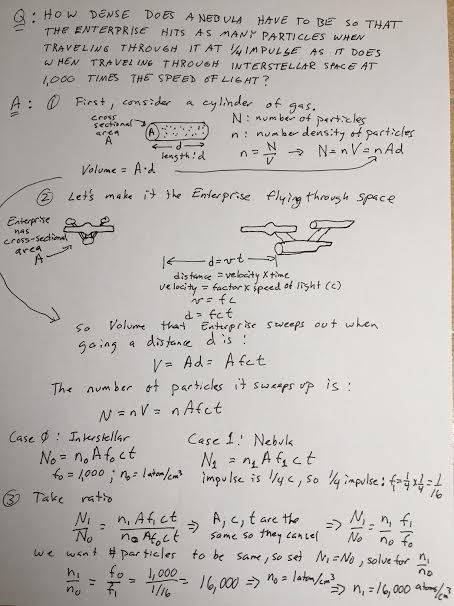 Q: HOW DENSE DOES A NEBULA HAVE TO BE SO THAT
THE ENTERPRISE HITS AS MANY PARTICLES WHEN
TRAVELING THROUGH IT AT 1/4 IMPULSE AS IT DOES
WHEN TRAVELING THROUGH INTERSTELLAR SPACE AT
1,000 TIMES THE SPEED OF LIGHT?
A: ① First, consider a cylinder of gas.
cross sectional area A
A
d
length: d
Volume = A·d
N: number of particles
n: number density of particles
n = N/V → N = nV = nAd
② Let's make it the Enterprise flying through space
Enterprise has cross-sectional area A
d = vt
distance = velocity x time
velocity = factor x speed of light (c)
v = fc
d = fct
So Volume that Enterprise sweeps out when
going a distance d is:
V = Ad = Afct
The number of particles it sweeps up is:
N = nV = nAfct
Case 0: Interstellar
N₀ = n₀Af₀ct
f₀ = 1,000; n₀ = 1 atom/cm³
Case 1: Nebula
N₁ = n₁Af₁ct
impulse is 1/4 c, so 1/4 impulse: f₁ = 1/4 x 1/4 = 1/16
③ Take ratio
N₁/N₀ = n₁Af₁ct/n₀Af₀ct ⇒ A, c, t are the same so they cancel ⇒ N₁/N₀ = n₁/n₀ f₁/f₀
We want # particles to be same, so set N₁ = N₀, solve for n₁/n₀
n₁/n₀ = f₀/f₁ = 1,000/1/16 = 16,000 ⇒ n₀ = 1 atom/cm³ ⇒ n₁ = 16,000 atoms/cm³